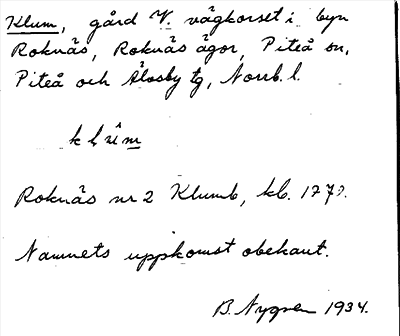 Klum, gård V. vägkorset i byn
Roknäs, Roknäs ägor, Piteå sn,
Piteå och Älvsby tg, Norrb. l.
klum
Roknäs nr 2 Klumb, kb.
Namnets uppkomst obekant.
B. Nygren 1934.